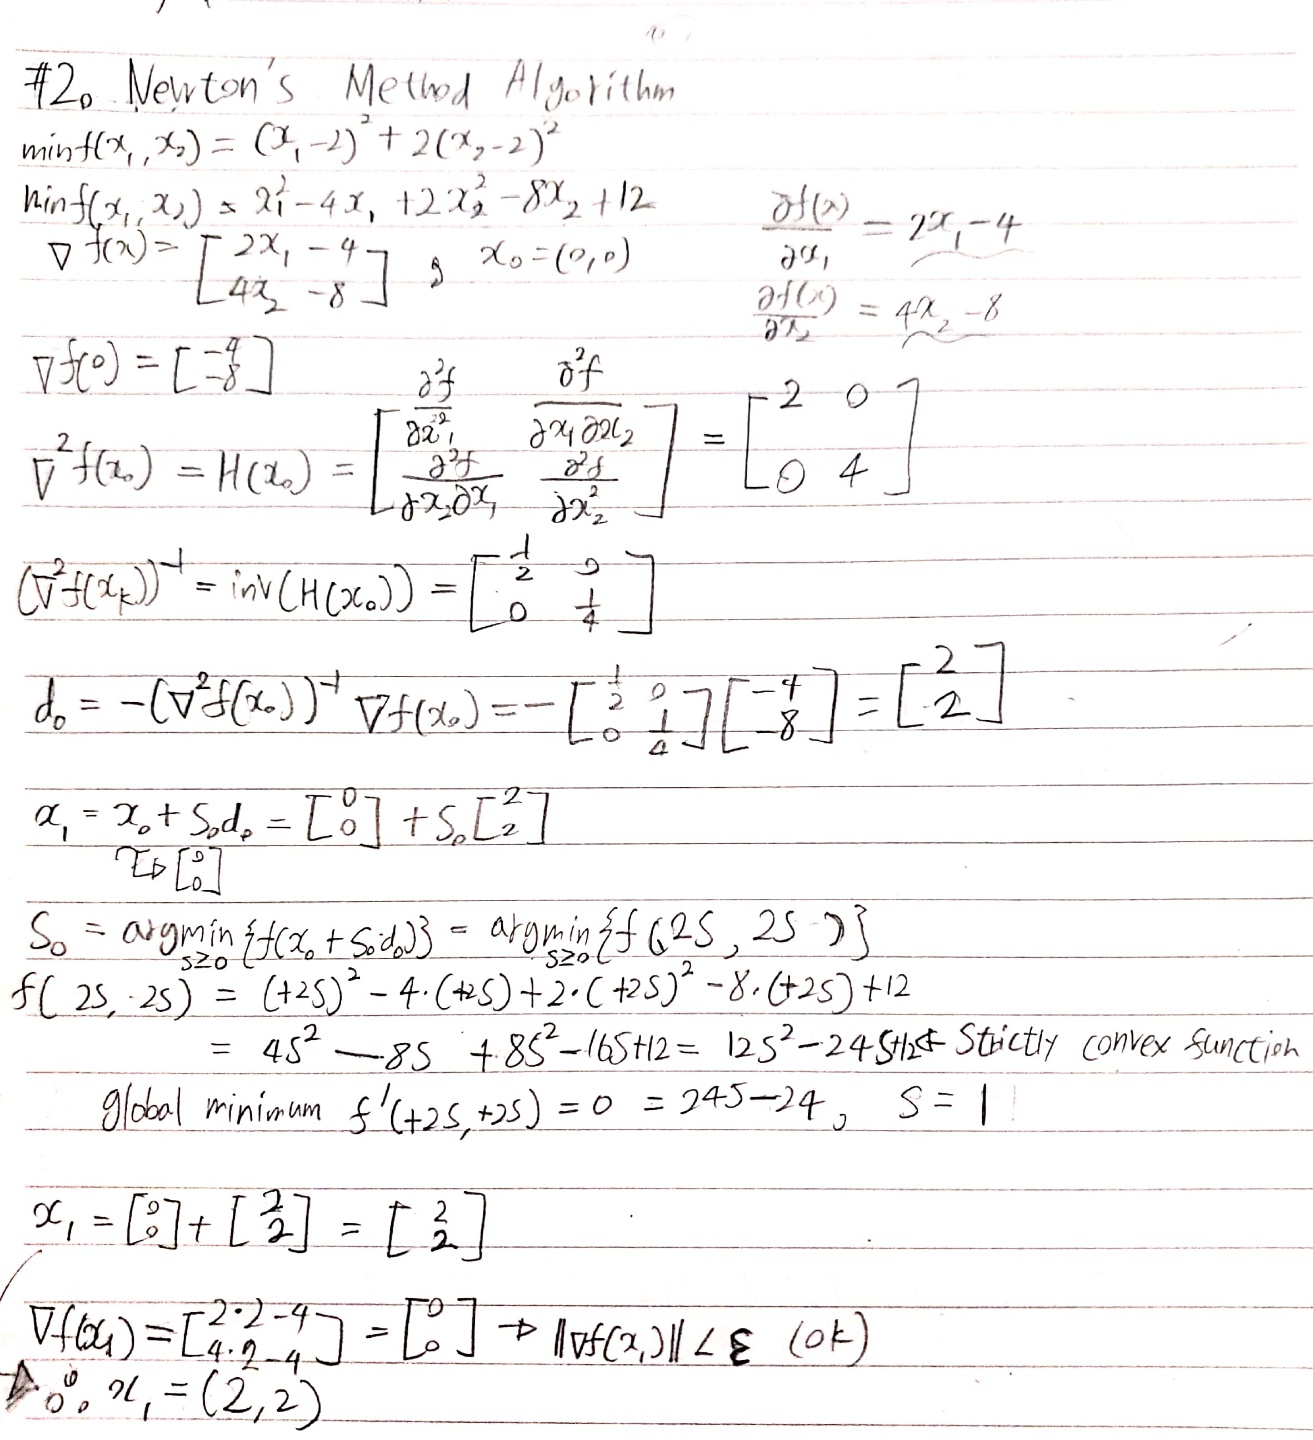 #2. Newton's Method Algorithm
min f(x₁, x₂) = (x₁-2)² + 2(x₂-2)²
min f(x₁, x₂) = x₁² - 4x₁ + 2x₂² - 8x₂ + 12
∂f(x)/∂x₁ = 2x₁ - 4
∇f(x) = [2x₁ - 4; 4x₂ - 8], x₀ = (0,0)
∂f(x)/∂x₂ = 4x₂ - 8
∇f(0) = [-4; -8]
∇²f(x₀) = H(x₀) = [∂²f/∂x₁² ∂²f/∂x₁∂x₂; ∂²f/∂x₂∂x₁ ∂²f/∂x₂²] = [2 0; 0 4]
(∇²f(x_k))⁻¹ = inv(H(x₀)) = [1/2 0; 0 1/4]
d₀ = -(∇²f(x₀))⁻¹ ∇f(x₀) = -[1/2 0; 0 1/4][-4; -8] = [2; 2]
x₁ = x₀ + S₀d₀ = [0; 0] + S₀[2; 2]
[0; 0]
S₀ = argmin s≥0 {f(x₀ + S₀·d₀)} = argmin s≥0 {f(2S, 2S)}
f(2S, 2S) = (+2S)² - 4·(+2S) + 2·(+2S)² - 8·(+2S) + 12
= 4S² - 8S + 8S² - 16S + 12 = 12S² - 24S + 12 ← Strictly convex function
global minimum f'(+2S, +2S) = 0 = 24S - 24, S = 1
x₁ = [0; 0] + [2; 2] = [2; 2]
∇f(x₁) = [2·2-4; 4·2-4] = [0; 0] → ‖∇f(x₁)‖ < ε (ok)
∴ x₁ = (2,2)